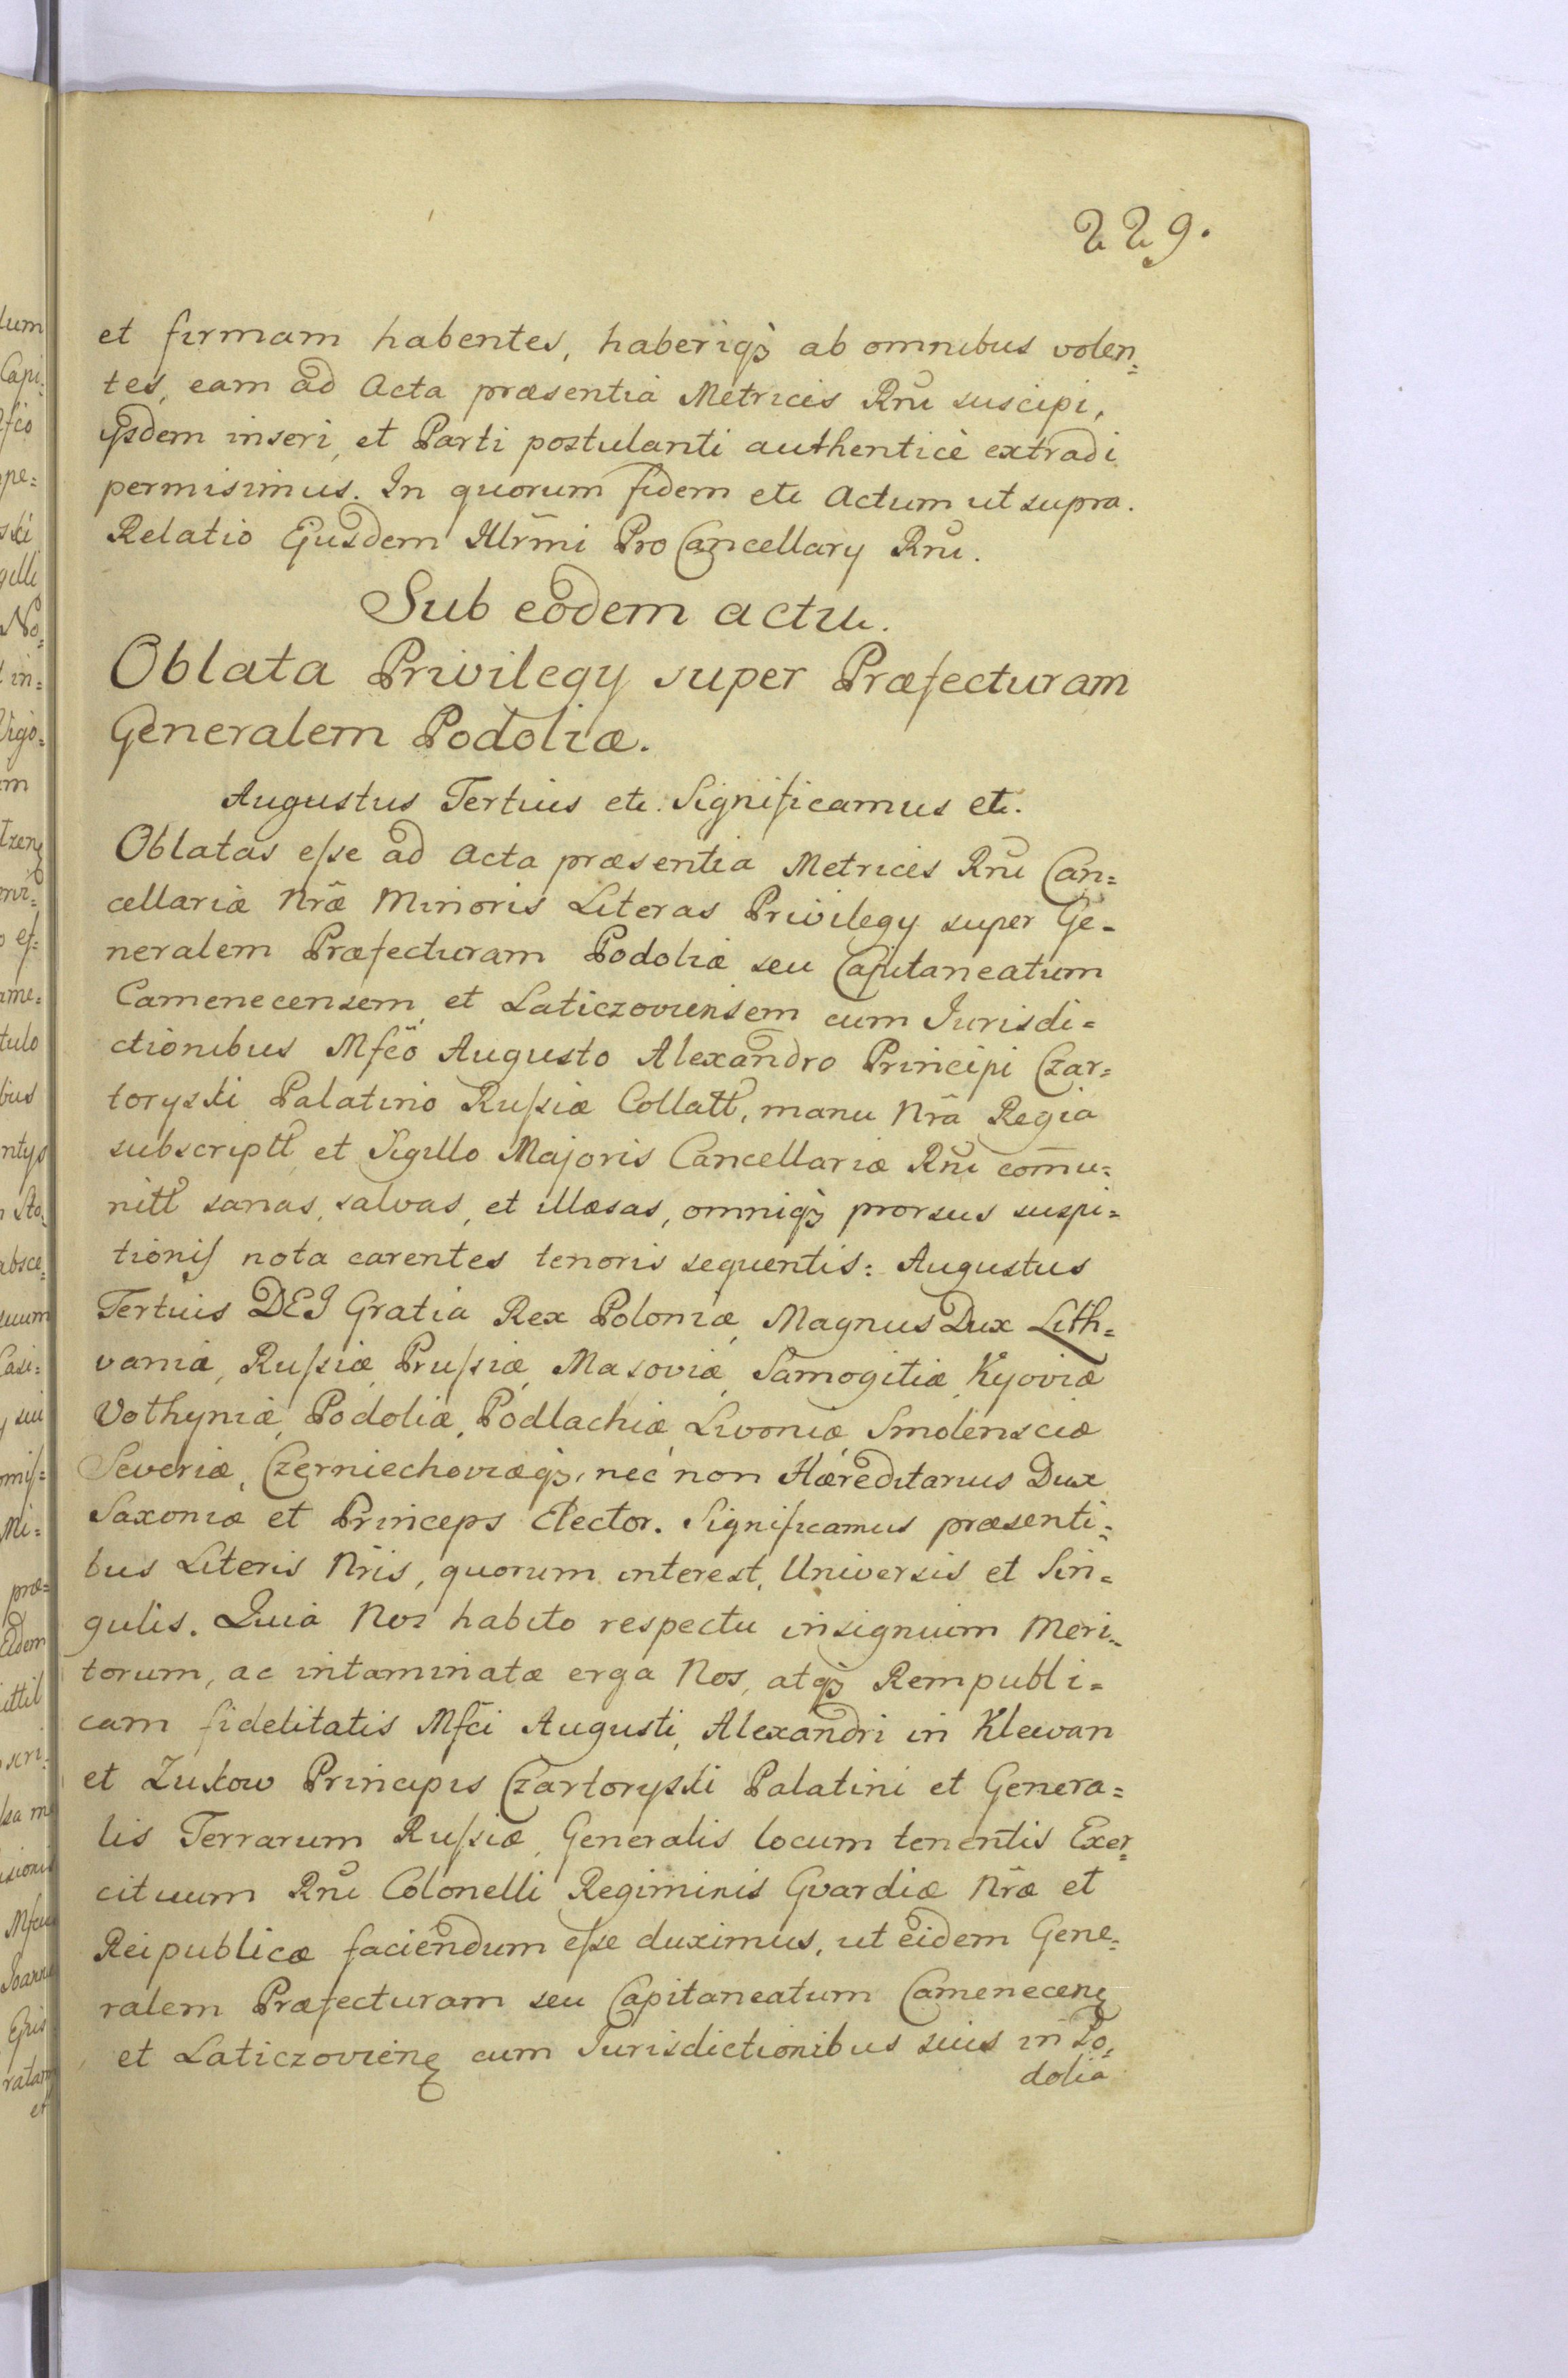 229.
et firmam habentes, haberiqꝫ ab omnibus volen=
tes, eam ad Acta præsentia Metrices Rni suscipi,
ijsdem inseri, et Parti postulanti authenticè extradi
permisimus. In quorum fidem etc Actum ut supra.
Relatio Ejusdem Illrmi Pro Cancellarÿ Rni.
Sub eodem actu.
Oblata Privilegÿ super Præfecturam
Generalem Podoliæ.
Augustus Tertius etc. Significamus etc.
Oblatas eſse ad Acta præsentia Metrices Rni Can=
cellariæ Nræ Minoris Literas Privilegÿ super Ge=
neralem Præfecturam Podoliæ seu Capitaneatum
Camenecensem, et Laticzoviensem cum Jurisdi=
ctionibus Mfco Augusto Alexandro Principi Czar=
toryski Palatino Ruſsiæ Collatt, manu Nrâ Regia
subscriptt et Sigillo Majoris Cancellariæ Rni com̄u=
nitt sanas, salvas, et illæsas, omniqꝫ prorsus suspi=
tioniſ nota carentes tenoris sequentis: Augustus
Tertius DEI Gratia Rex Poloniæ, Magnus Dux Lith=
vaniæ, Ruſsiæ, Pruſsiæ, Masoviæ, Samogitiæ, Kyoviæ
Volhyniæ, Podoliæ, Podlachiæ, Livoniæ, Smolensciæ
Severiæ, Czerniechoviæqꝫ, nec non Hæreditarius Dux
Saxoniæ et Princeps Elector. Significamus præsenti=
bus Literis Nris, quorum interest, Universis et Sin=
gulis. Quia Nos habito respectu insignium Meri=
torum, ac intaminatæ erga Nos, atqꝫ Rempubli=
cam fidelitatis Mfci Augusti, Alexandri in Klewan
et Zukow Principis Czartoryski Palatini et Genera=
lis Terrarum Ruſsiæ, Generalis locum tenentis Exer=
cituum Rni Colonelli Regiminis Gvardiæ Nræ et
Reipublicæ faciendum eſse duximus, ut eidem Gene=
ralem Præfecturam seu Capitaneatum Camenecenꝫ
et Laticzovienꝫ cum Jurisdictionibus suis in Po=
dolia